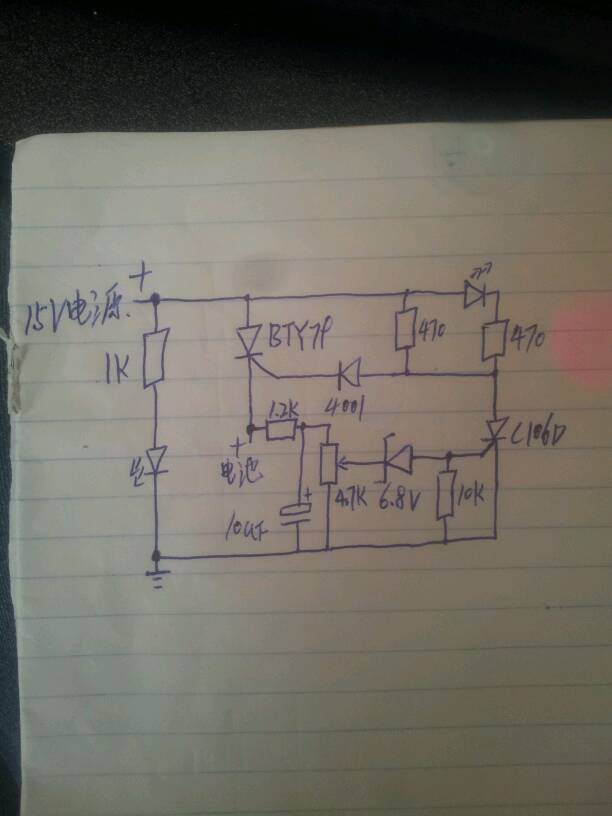 +
15V电源
1K
BTY79
470
470
4001
1.2K
C106D
+
电池
4.7K
6.8V
10K
+
10uF